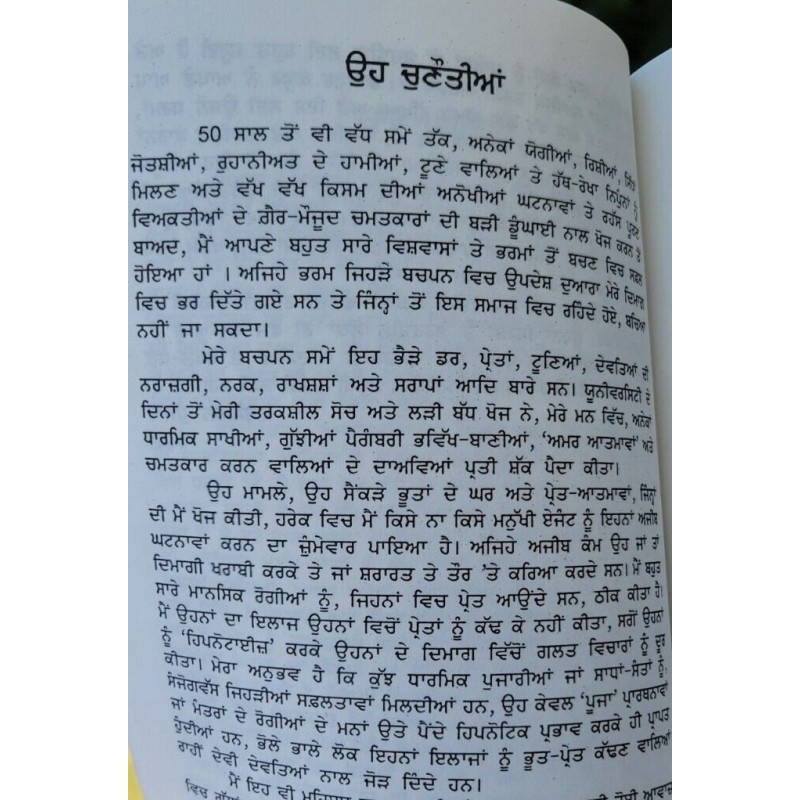 ਉਹ ਚੁਣੌਤੀਆਂ
50 ਸਾਲ ਤੋਂ ਵੀ ਵੱਧ ਸਮੇਂ ਤੱਕ, ਅਨੇਕਾਂ ਯੋਗੀਆਂ, ਰਿਸ਼ੀਆਂ,
ਜੋਤਸ਼ੀਆਂ, ਰੁਹਾਨੀਅਤ ਦੇ ਹਾਮੀਆਂ, ਟੂਣੇ ਵਾਲਿਆਂ ਤੇ ਹੱਥ-ਰੇਖਾ ਨਿਪੁੰਨਾਂ ਨੂੰ
ਮਿਲਣ ਅਤੇ ਵੱਖ ਵੱਖ ਕਿਸਮ ਦੀਆਂ ਅਨੋਖੀਆਂ ਘਟਨਾਵਾਂ ਤੇ ਰਹੱਸ ਪੂਰਣ
ਵਿਅਕਤੀਆਂ ਦੇ ਗ਼ੈਰ-ਮੌਜੂਦ ਚਮਤਕਾਰਾਂ ਦੀ ਬੜੀ ਡੂੰਘਾਈ ਨਾਲ ਖੋਜ ਕਰਨ ਤੋਂ
ਬਾਅਦ, ਮੈਂ ਆਪਣੇ ਬਹੁਤ ਸਾਰੇ ਵਿਸ਼ਵਾਸਾਂ ਤੇ ਭਰਮਾਂ ਤੋਂ ਬਚਣ ਵਿਚ ਸਫ਼ਲ
ਹੋਇਆ ਹਾਂ । ਅਜਿਹੇ ਭਰਮ ਜਿਹੜੇ ਬਚਪਨ ਵਿਚ ਉਪਦੇਸ਼ ਦੁਆਰਾ ਮੇਰੇ ਦਿਮਾਗ
ਵਿਚ ਭਰ ਦਿੱਤੇ ਗਏ ਸਨ ਤੇ ਜਿੰਨ੍ਹਾਂ ਤੋਂ ਇਸ ਸਮਾਜ ਵਿਚ ਰਹਿੰਦੇ ਹੋਏ, ਬਚਿਆ
ਨਹੀਂ ਜਾ ਸਕਦਾ।
ਮੇਰੇ ਬਚਪਨ ਸਮੇਂ ਇਹ ਭੈੜੇ ਡਰ, ਪ੍ਰੇਤਾਂ, ਟੂਣਿਆਂ, ਦੇਵਤਿਆਂ ਦੀ
ਨਰਾਜ਼ਗੀ, ਨਰਕ, ਰਾਖਸ਼ਸ਼ਾਂ ਅਤੇ ਸਰਾਪਾਂ ਆਦਿ ਬਾਰੇ ਸਨ। ਯੂਨੀਵਰਸਿਟੀ ਦੇ
ਦਿਨਾਂ ਤੋਂ ਮੇਰੀ ਤਰਕਸ਼ੀਲ ਸੋਚ ਅਤੇ ਲੜੀ ਬੱਧ ਖੋਜ ਨੇ, ਮੇਰੇ ਮਨ ਵਿੱਚ, ਅਨੇਕਾਂ
ਧਾਰਮਿਕ ਸਾਖੀਆਂ, ਗੁੱਝੀਆਂ ਪੈਗੰਬਰੀ ਭਵਿੱਖ-ਬਾਣੀਆਂ, ‘ਅਮਰ ਆਤਮਾਵਾਂ’ ਅਤੇ
ਚਮਤਕਾਰ ਕਰਨ ਵਾਲਿਆਂ ਦੇ ਦਾਅਵਿਆਂ ਪ੍ਰਤੀ ਸ਼ੱਕ ਪੈਦਾ ਕੀਤਾ।
ਉਹ ਮਾਮਲੇ, ਉਹ ਸੈਂਕੜੇ ਭੂਤਾਂ ਦੇ ਘਰ ਅਤੇ ਪ੍ਰੇਤ-ਆਤਮਾਵਾਂ, ਜਿੰਨ੍ਹਾਂ
ਦੀ ਮੈਂ ਖੋਜ ਕੀਤੀ, ਹਰੇਕ ਵਿਚ ਮੈਂ ਕਿਸੇ ਨਾ ਕਿਸੇ ਮਨੁੱਖੀ ਏਜੰਟ ਨੂੰ ਇਹਨਾਂ ਅਜੀਬ
ਘਟਨਾਵਾਂ ਕਰਨ ਦਾ ਜ਼ੁੰਮੇਵਾਰ ਪਾਇਆ ਹੈ। ਅਜਿਹੇ ਅਜੀਬ ਕੰਮ ਉਹ ਜਾਂ ਤਾਂ
ਦਿਮਾਗੀ ਖਰਾਬੀ ਕਰਕੇ ਤੇ ਜਾਂ ਸ਼ਰਾਰਤ ਤੇ ਤੌਰ ’ਤੇ ਕਰਿਆ ਕਰਦੇ ਸਨ। ਮੈਂ ਬਹੁਤ
ਸਾਰੇ ਮਾਨਸਿਕ ਰੋਗੀਆਂ ਨੂੰ, ਜਿਹਨਾਂ ਵਿਚ ਪ੍ਰੇਤ ਆਉਂਦੇ ਸਨ, ਠੀਕ ਕੀਤਾ ਹੈ।
ਮੈਂ ਉਹਨਾਂ ਦਾ ਇਲਾਜ ਉਹਨਾਂ ਵਿਚੋਂ ਪ੍ਰੇਤਾਂ ਨੂੰ ਕੱਢ ਕੇ ਨਹੀਂ ਕੀਤਾ, ਸਗੋਂ ਉਹਨਾਂ
ਨੂੰ ‘ਹਿਪਨੋਟਾਈਜ਼’ ਕਰਕੇ ਉਹਨਾਂ ਦੇ ਦਿਮਾਗ ਵਿੱਚੋਂ ਗਲਤ ਵਿਚਾਰਾਂ ਨੂੰ ਦੂਰ
ਕੀਤਾ। ਮੇਰਾ ਅਨੁਭਵ ਹੈ ਕਿ ਕੁੱਝ ਧਾਰਮਿਕ ਪੁਜਾਰੀਆਂ ਜਾਂ ਸਾਧਾਂ-ਸੰਤਾਂ ਨੂੰ,
ਸੰਜੋਗਵੱਸ ਜਿਹੜੀਆਂ ਸਫ਼ਲਤਾਵਾਂ ਮਿਲਦੀਆਂ ਹਨ, ਉਹ ਕੇਵਲ ‘ਪੂਜਾ’ ਪ੍ਰਾਰਥਨਾਵਾਂ
ਜਾਂ ਮੰਤਰਾਂ ਦੇ ਰੋਗੀਆਂ ਦੇ ਮਨਾਂ ਉਤੇ ਪੈਂਦੇ ਹਿਪਨੋਟਿਕ ਪ੍ਰਭਾਵ ਕਰਕੇ ਹੀ ਪ੍ਰਾਪਤ
ਹੁੰਦੀਆਂ ਹਨ, ਭੋਲੇ ਭਾਲੇ ਲੋਕ ਇਹਨਾਂ ਇਲਾਜਾਂ ਨੂੰ ਭੂਤ-ਪ੍ਰੇਤ ਕੱਢਣ ਵਾਲਿਆਂ
ਰਾਹੀਂ ਦੇਵੀ ਦੇਵਤਿਆਂ ਨਾਲ ਜੋੜ ਦਿੰਦੇ ਹਨ।
ਮੈਂ ਇਹ ਵੀ
ਵਿਚ